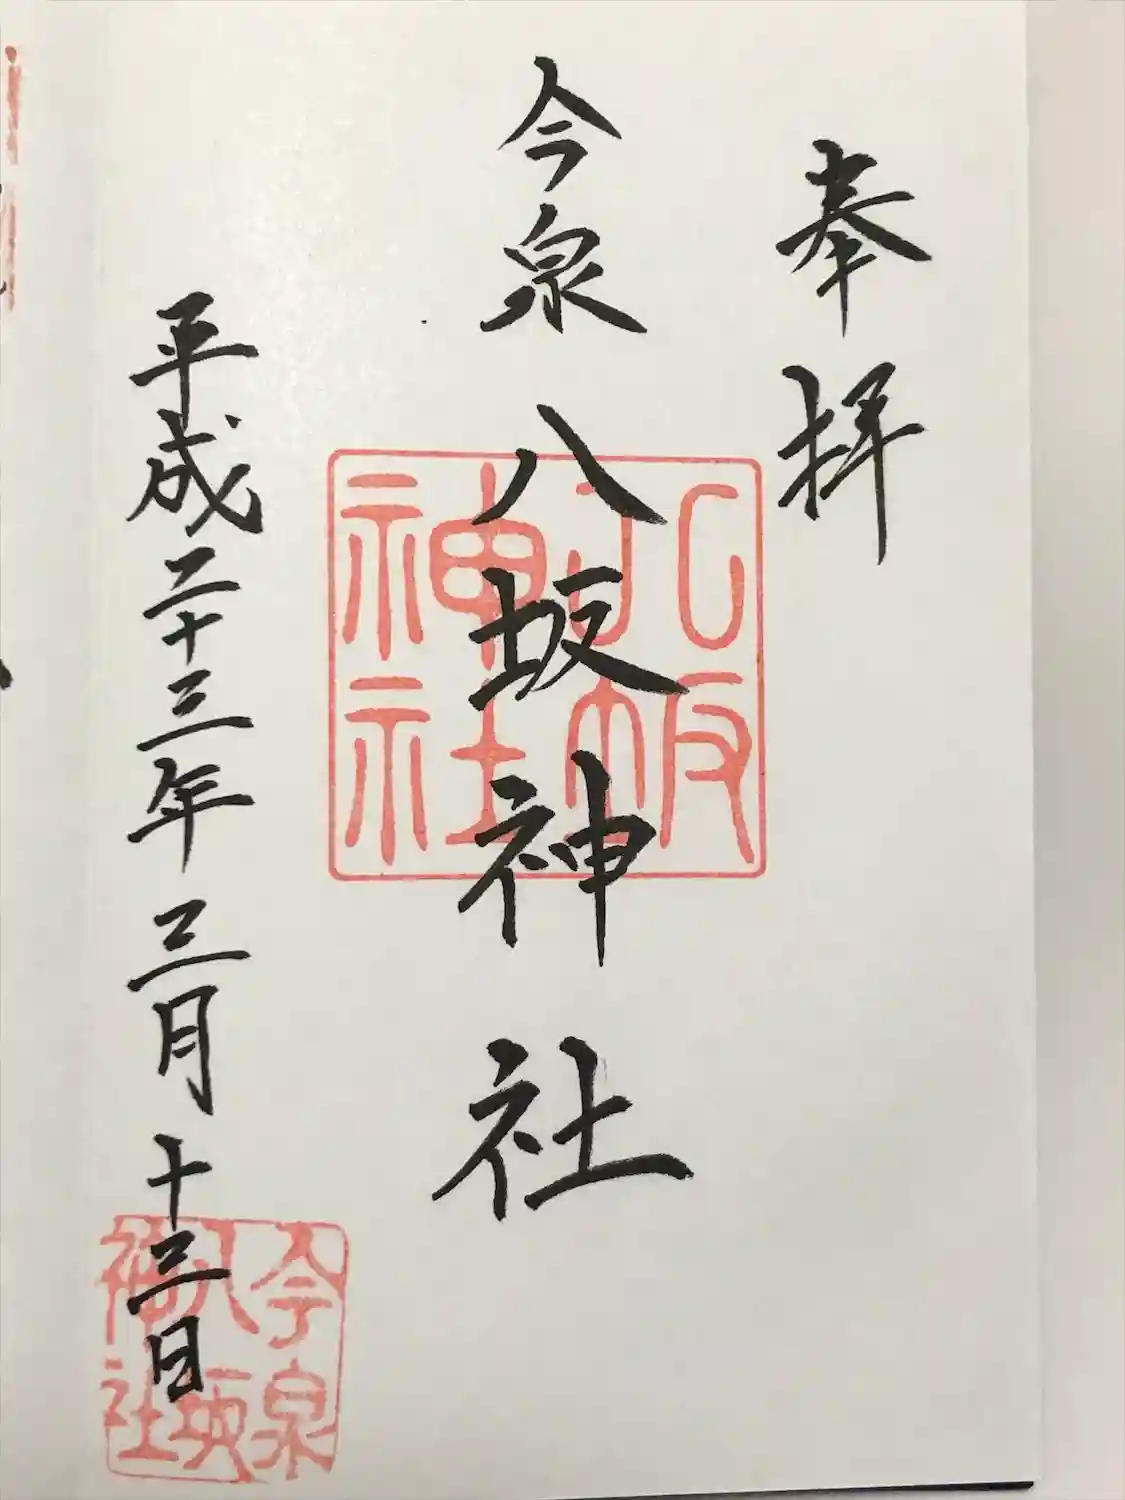 奉拝
今泉八坂神社
平成二十三年三月十三日
八坂
神社
今泉
八坂
神社